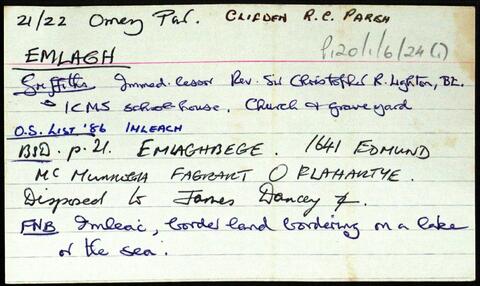 21/22 Omey Par. CLIFDEN R.C. PARSH
P120/1/6/24(1)
EMLAGH
Griffiths Immed. lessor Rev. Sir Christopher R. Lighton, Bt.
ICMS school-house, Church & graveyard
O.S. LIST '86 IMLEACH
BSD. p. 21. EMLAGHBEGE. 1641 EDMUND
Mc MURROGH O FLAHARTYE.
Disposed to James Darcey
FNB Imleac, border land bordering on a lake
or the sea.